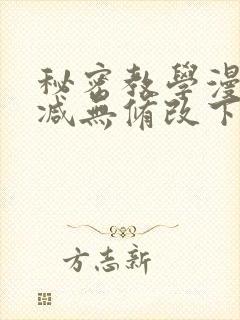 秘密教學漫
减無脩改下
方志新